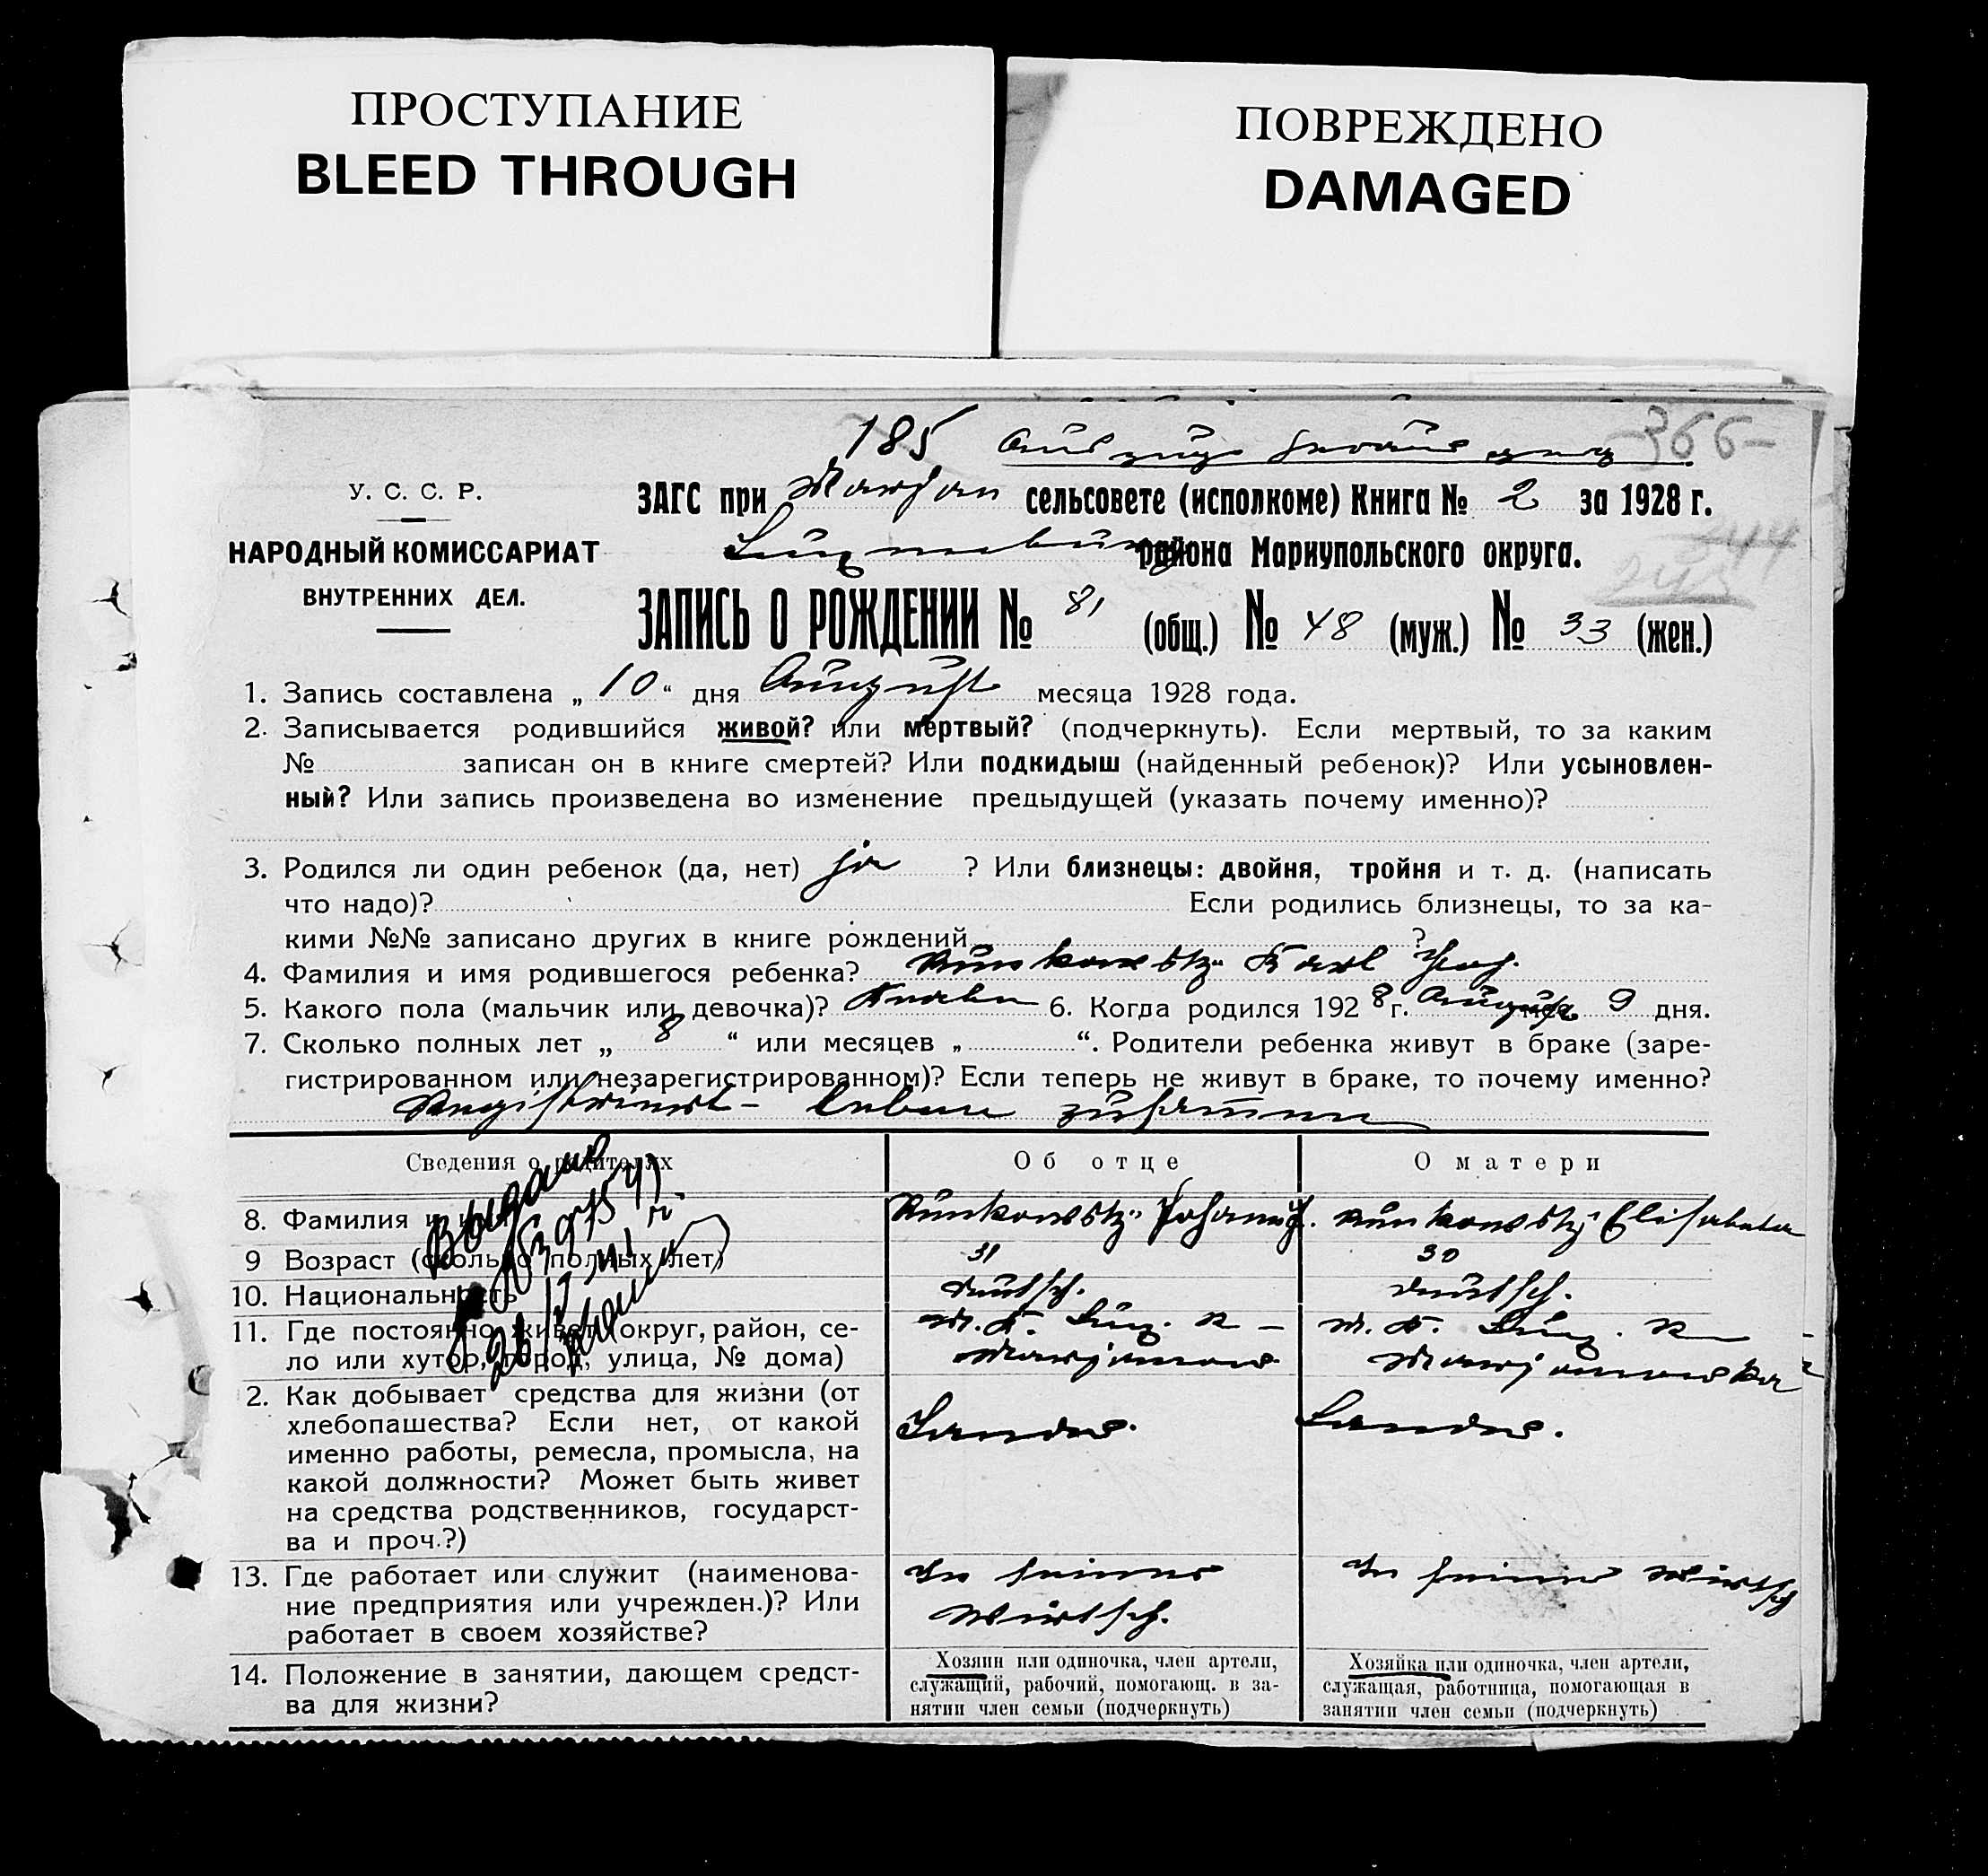 ПРОСТУПАНИЕ
BLEED THROUGH
ПОВРЕЖДЕНО
DAMAGED
185 366
У. С. С. Р.
НАРОДНЫЙ КОМИССАРИАТ
ВНУТРЕННИХ ДЕЛ.
ЗАГС при Marjan сельсовете (исполкоме) Книга № 2 за 1928 г.
района Мариупольского округа.
244
ЗАПИСЬ О РОЖДЕНИИ № 81 (общ.) № 48 (муж.) № 33 (жен.)
1. Запись составлена „ 10 “ дня August месяца 1928 года.
2. Записывается родившийся живой? или мертвый? (подчеркнуть). Если мертвый, то за каким
№ записан он в книге смертей? Или подкидыш (найденный ребенок)? Или усыновлен-
ный? Или запись произведена во изменение предыдущей (указать почему именно)?
3. Родился ли один ребенок (да, нет) ja ? Или близнецы: двойня, тройня и т. д. (написать
что надо)? Если родились близнецы, то за ка-
кими №№ записано других в книге рождений ?
4. Фамилия и имя родившегося ребенка? Runkowsky Karl Joh.
5. Какого пола (мальчик или девочка)? Knabe 6. Когда родился 1928 г. August 9 дня.
7. Сколько полных лет „ 8 “ или месяцев „ “. Родители ребенка живут в браке (заре-
гистрированном или незарегистрированном)? Если теперь не живут в браке, то почему именно?
Registriert – leben zusammen
Сведения о родителях Об отце О матери
Выдано
8. Фамилия и Runkowsky Johann J. Runkowsky Elisabeta
9 Возраст (сколько полных лет) 31 30
10. Национальность deutsch. deutsch.
11. Где постоянно живет (округ, район, се-
ло или хутор, город, улица, № дома)
M. K. Lux. R – M. K. Lux. R –
Marjanow Marjanowka
2. Как добывает средства для жизни (от
хлебопашества? Если нет, от какой
именно работы, ремесла, промысла, на
какой должности? Может быть живет
на средства родственников, государст-
ва и проч.?)
Landw. Landw.
13. Где работает или служит (наименова-
ние предприятия или учрежден.)? Или
работает в своем хозяйстве?
In seiner
Wirtsch.
In seiner Wirtsch
14. Положение в занятии, дающем средст-
ва для жизни?
Хозяин или одиночка, член артели,
служащий, рабочий, помогающ. в за-
нятии член семьи (подчеркнуть)
Хозяйка или одиночка, член артели,
служащая, работница, помогающая в
занятии член семьи (подчеркнуть)